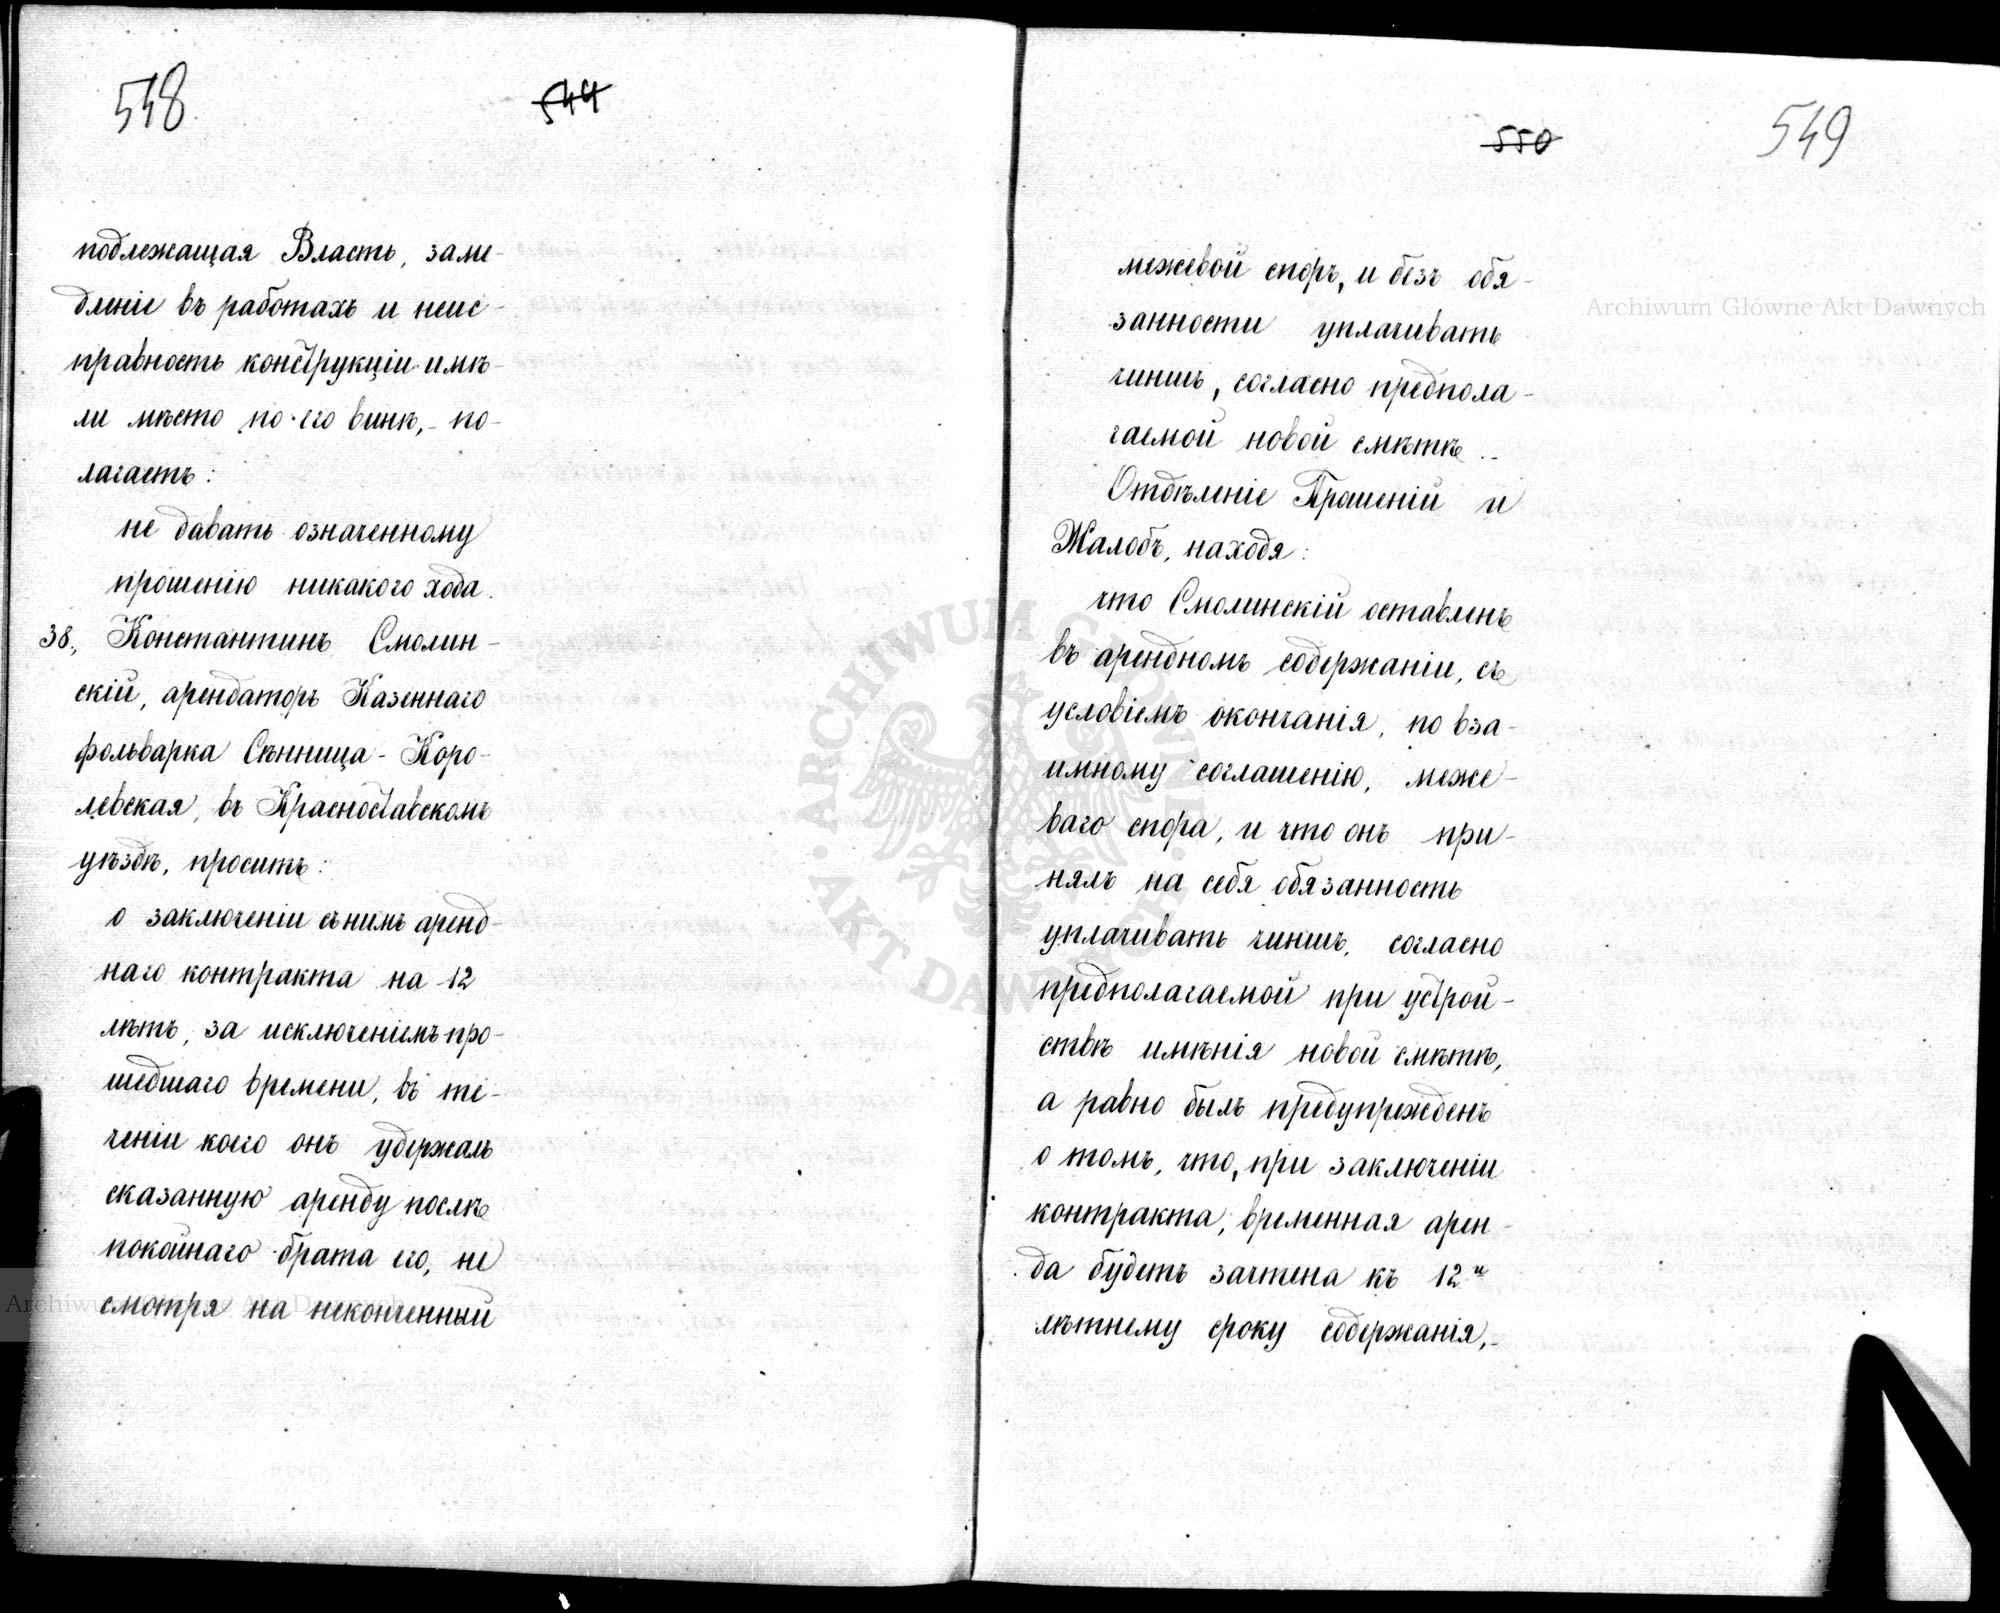 548
544
подлежащая Власть, заме-
дленіе въ работахъ и неис-
правность конструкціи имѣ-
ли мѣсто по его винѣ, - по-
лагаетъ:
не давать означенному
прошенію никакого хода.
38., Константинъ Смолин-
скій, арендаторъ Казеннаго
фольварка Сѣнница-Коро-
левская, въ Красноставскомъ
уѣздѣ, проситъ:
о заключеніи съ нимъ аренд-
наго контракта на 12
лѣтъ, за исключеніемъ про-
шедшаго времени, въ те-
ченіи коего онъ удержалъ
сказанную аренду послѣ
покойнаго брата его, не
смотря на неконченный
550
549
межевой споръ, и безъ обя-
занности уплачивать
чиншъ, согласно предпола-
гаемой новой смѣтѣ.-
Отдѣленіе Прошеній и
Жалобъ, находя:
что Смолинскій оставленъ
въ арендномъ содержаніи, съ
условіемъ окончанія, по вза-
имному соглашенію, меже-
ваго спора, и что онъ при-
нялъ на себя обязанность
уплачивать чиншъ, согласно
предполагаемой при устрой-
ствѣ имѣнія новой смѣтѣ,
а равно былъ предупрежденъ
о томъ, что, при заключеніи
контракта, временная арен-
да будетъ зачтена къ 12и
лѣтнему сроку содержанія,-
Archiwum Główne Akt Dawnych
ARCHIWUM GŁÓWNE AKT DAWNYCH
Archiwum Główne Akt Dawnych